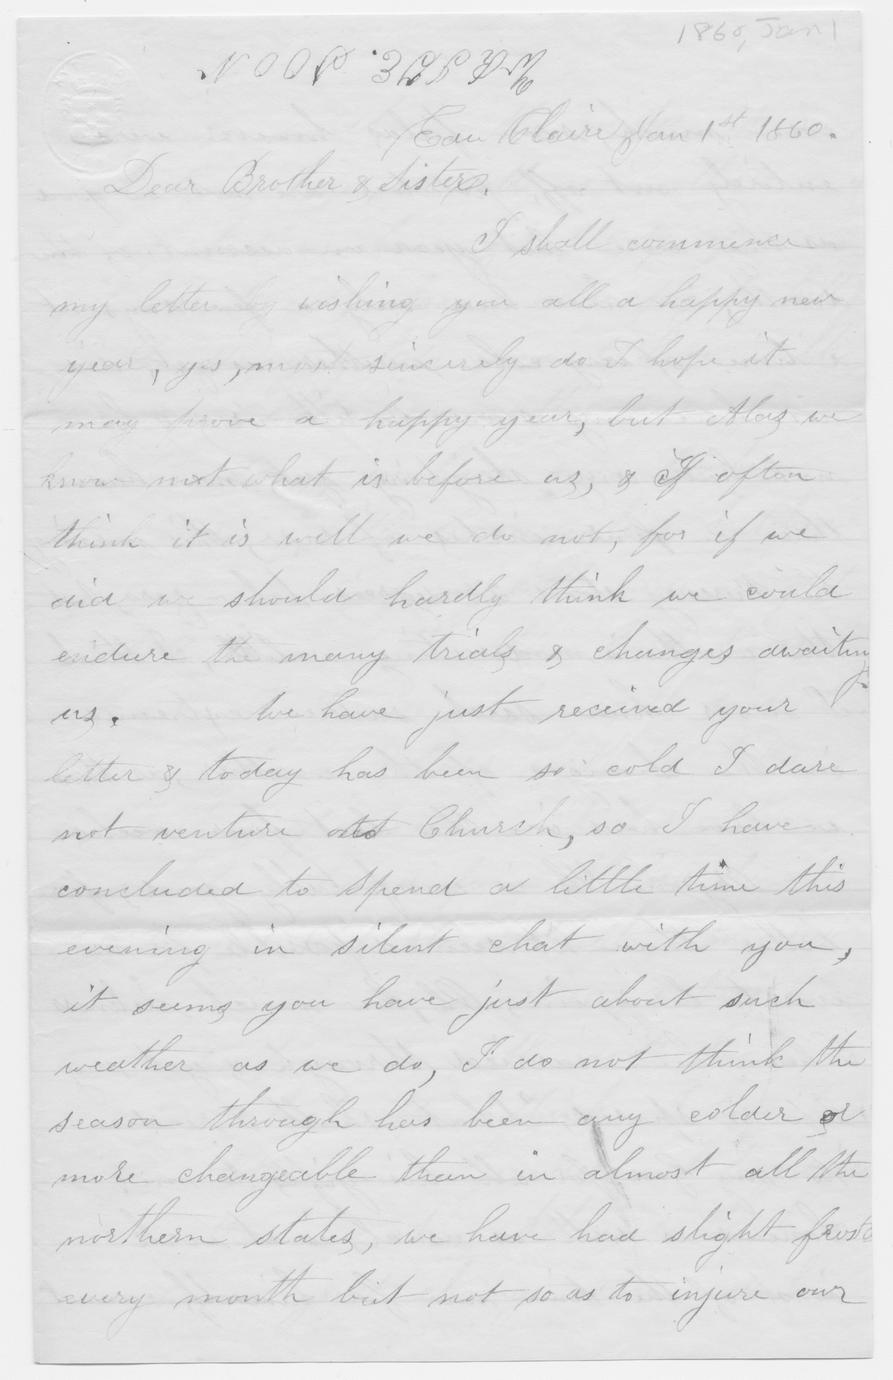 1860, Jan 1
Eau Claire Jan 1st 1860.
Dear Brother & Sister,
I shall commence
my letter by wishing you all a happy new
year, yes, most sincerely do I hope it
may prove a happy year, but Alas we
know not what is before us, & I often
think it is well we do not, for if we
did we should hardly think we could
endure the many trials & changes awaiting
us. We have just received your
letter & today has been so cold I dare
not venture to Church, so I have
concluded to spend a little time this
evening in silent chat with you,
it seems you have just about such
weather as we do, I do not think the
season through has been any colder or
more changeable than in almost all the
northern states, we have had slight frosts
every month but not so as to injure our